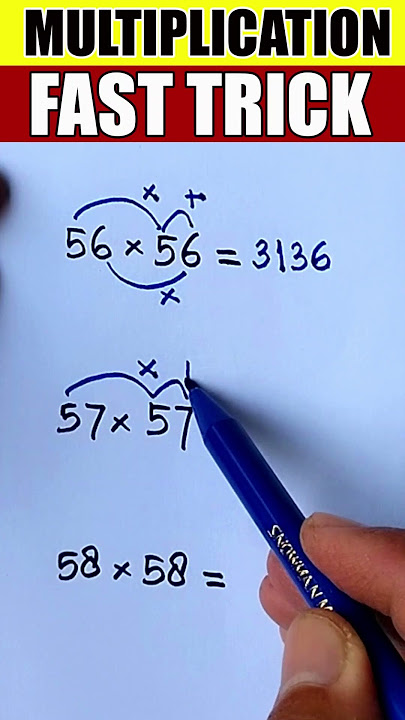 MULTIPLICATION
FAST TRICK
× +
56 × 56 = 3136
×
×
57 × 57
58 × 58 =